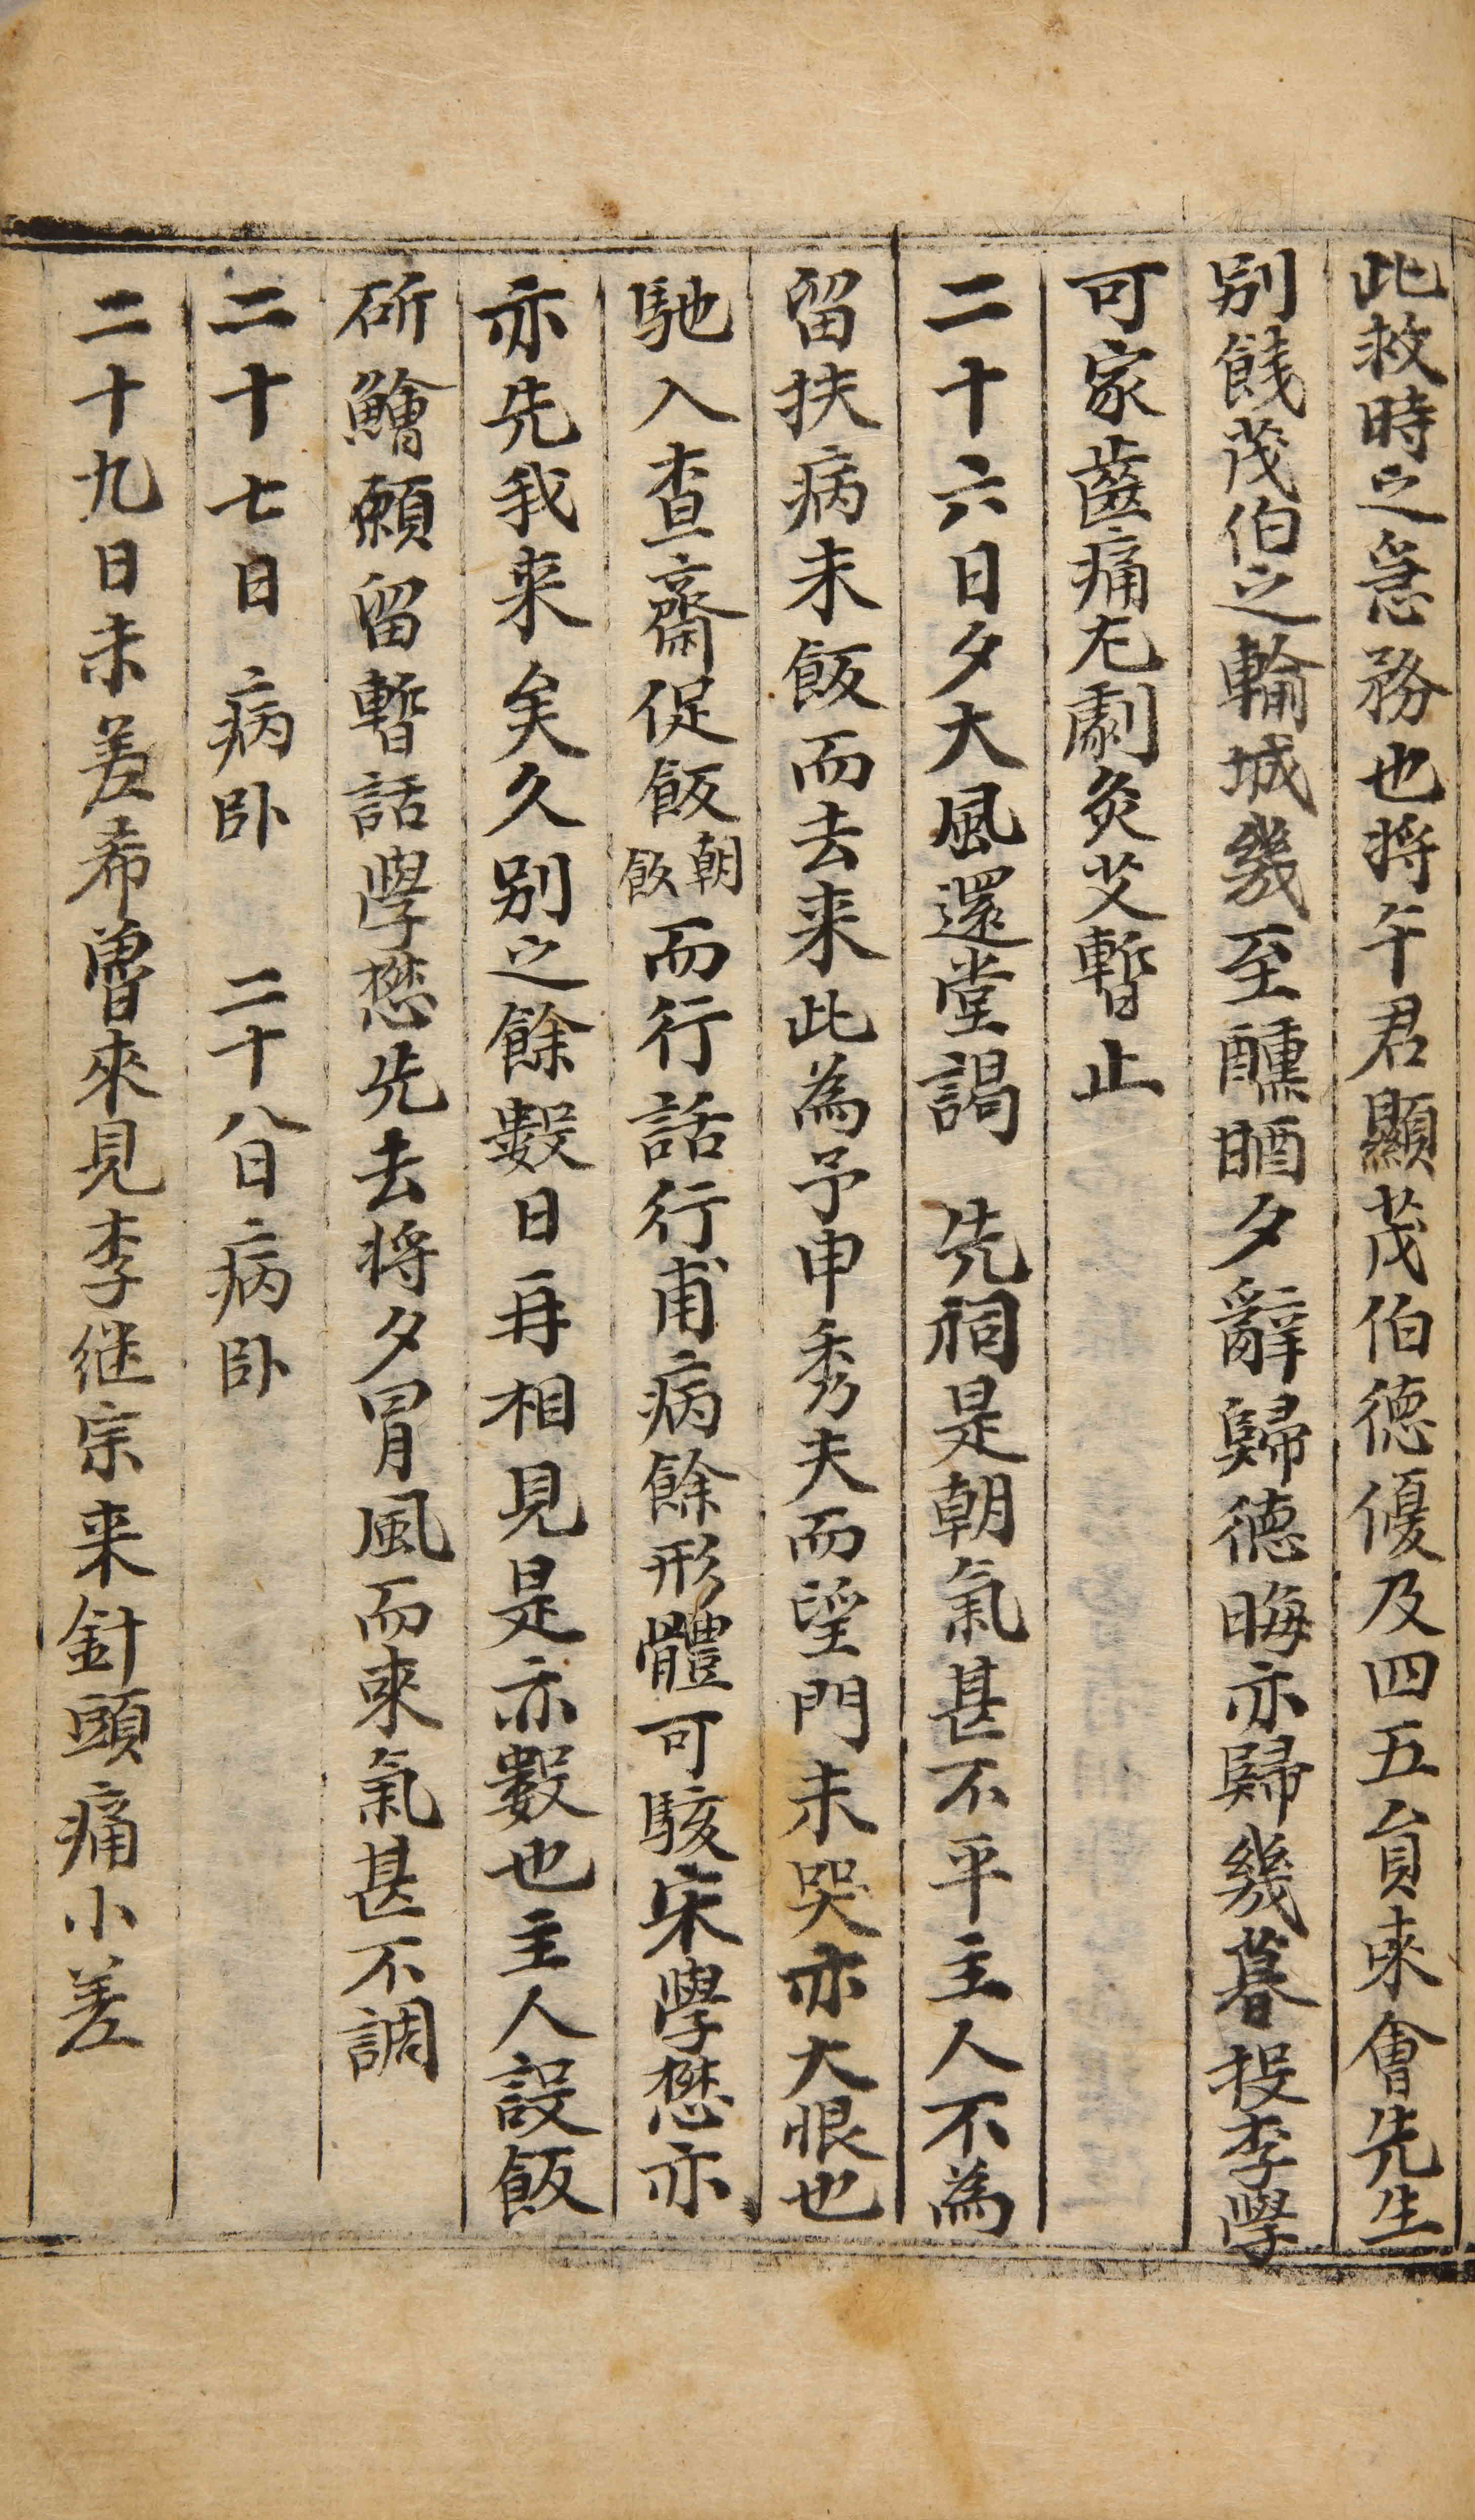 此救時之急務也将午君顯茂伯德優及四五員來會先生
别餞茂伯之輸城幾至醺㫚夕辭歸德晦亦歸幾暮投李學
可家齒痛尤劇灸艾暫止
二十六日夕大風還堂謁　先祠是朝氣甚不平主人不為
留扶病未飯而去来此為予申秀夫而望門未哭亦大恨也
馳入查齋促飯朝飯而行話行甫病餘形體可駭宋學懋亦
亦先我来矣久别之餘數日再相見是亦數也主人設飯
斫鱠願留暫話學懋先去将夕冐風而來氣甚不調
二十七日　病卧　二十八日病卧
二十九日未差希曾來見李继宗来針頭痛小差